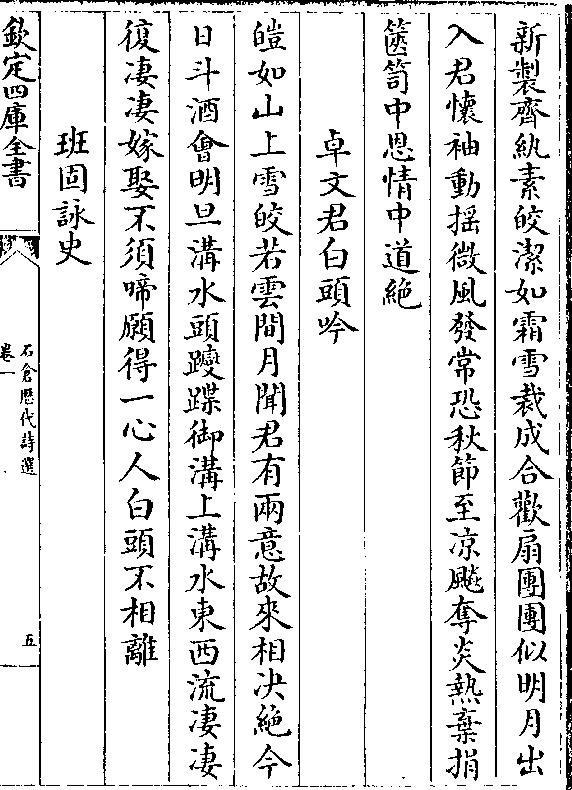 新製齊紈素皎潔如霜雪裁成合歡扇團團似明月出
入君懷袖動揺微風發常恐秋節至凉飈奪炎熱棄捐
篋笥中恩情中道絶
卓文君白頭吟
皚如山上雪皎若雲間月聞君有兩意故來相决絶今
日斗酒㑹明旦溝水頭躞蹀御溝上溝水東西流凄凄
復凄凄嫁娶不須啼願得一心人白頭不相離
班固詠史
欽定四庫全書
石倉歴代詩選
卷一
五